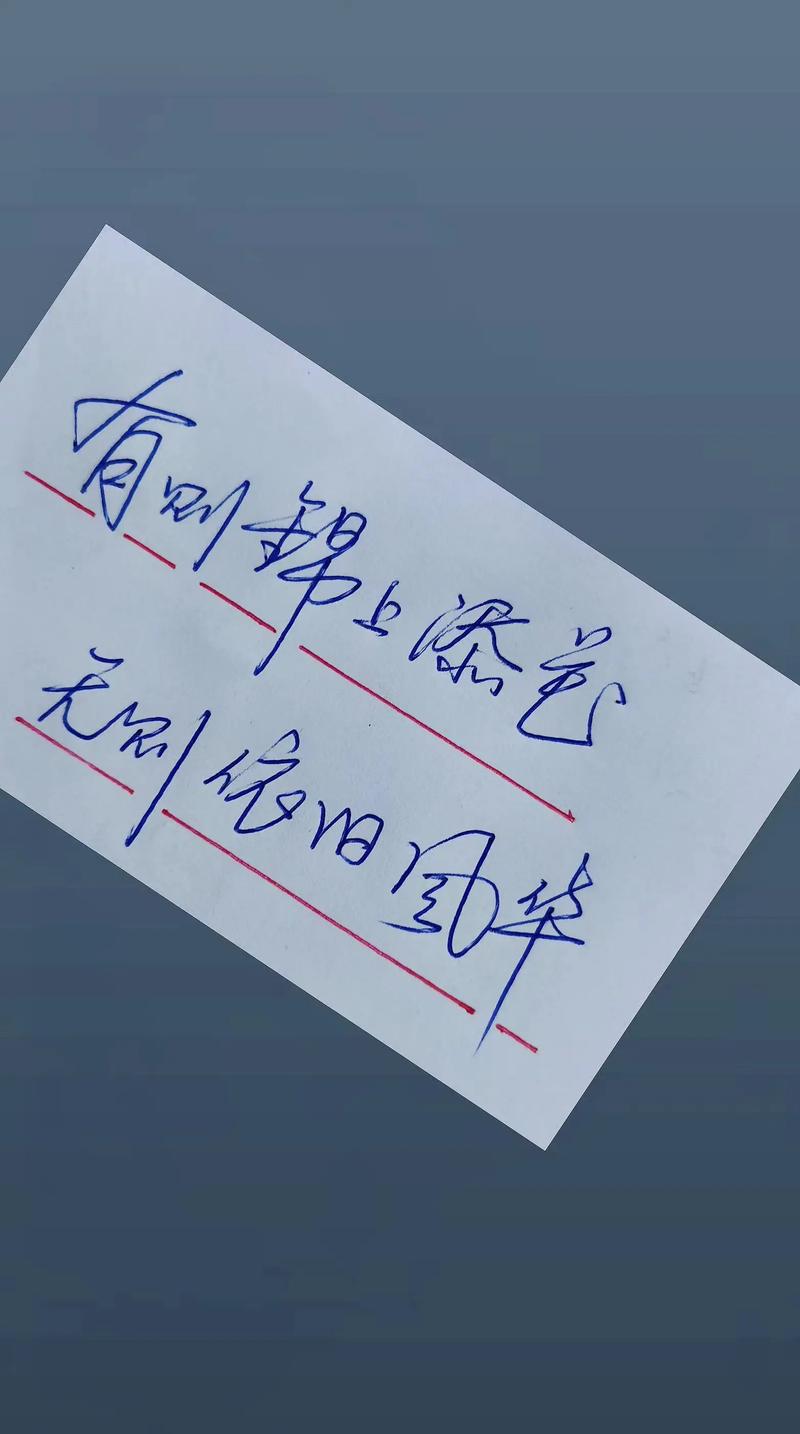 有则锦上添花
无则依旧风华